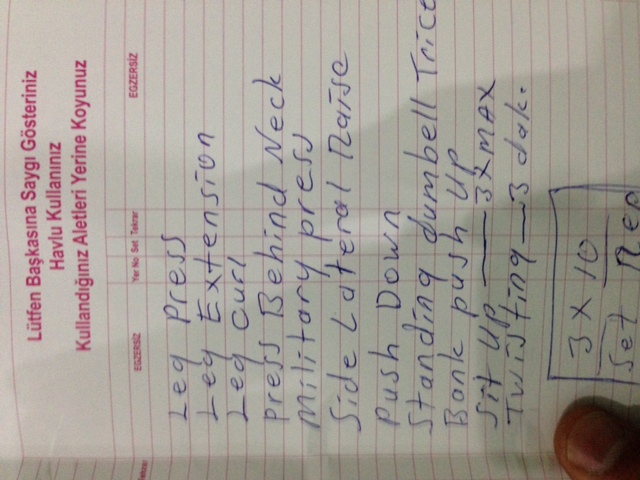 Lütfen Başkasına Saygı Gösteriniz
Havlu Kullanınız
Kullandığınız Aletleri Yerine Koyunuz
EGZERSİZ Yer No Set Tekrar EGZERSİZ
Tekrar
Leg Press
Leg Extension
Leg Curl
Press Behind Neck
Military press
Side Lateral Raise
Push Down
Standing dumbell Trice
Bank push UP
Sit UP — 3XMAX
Twisting — 3 dak.
3 X 10
Set Rep